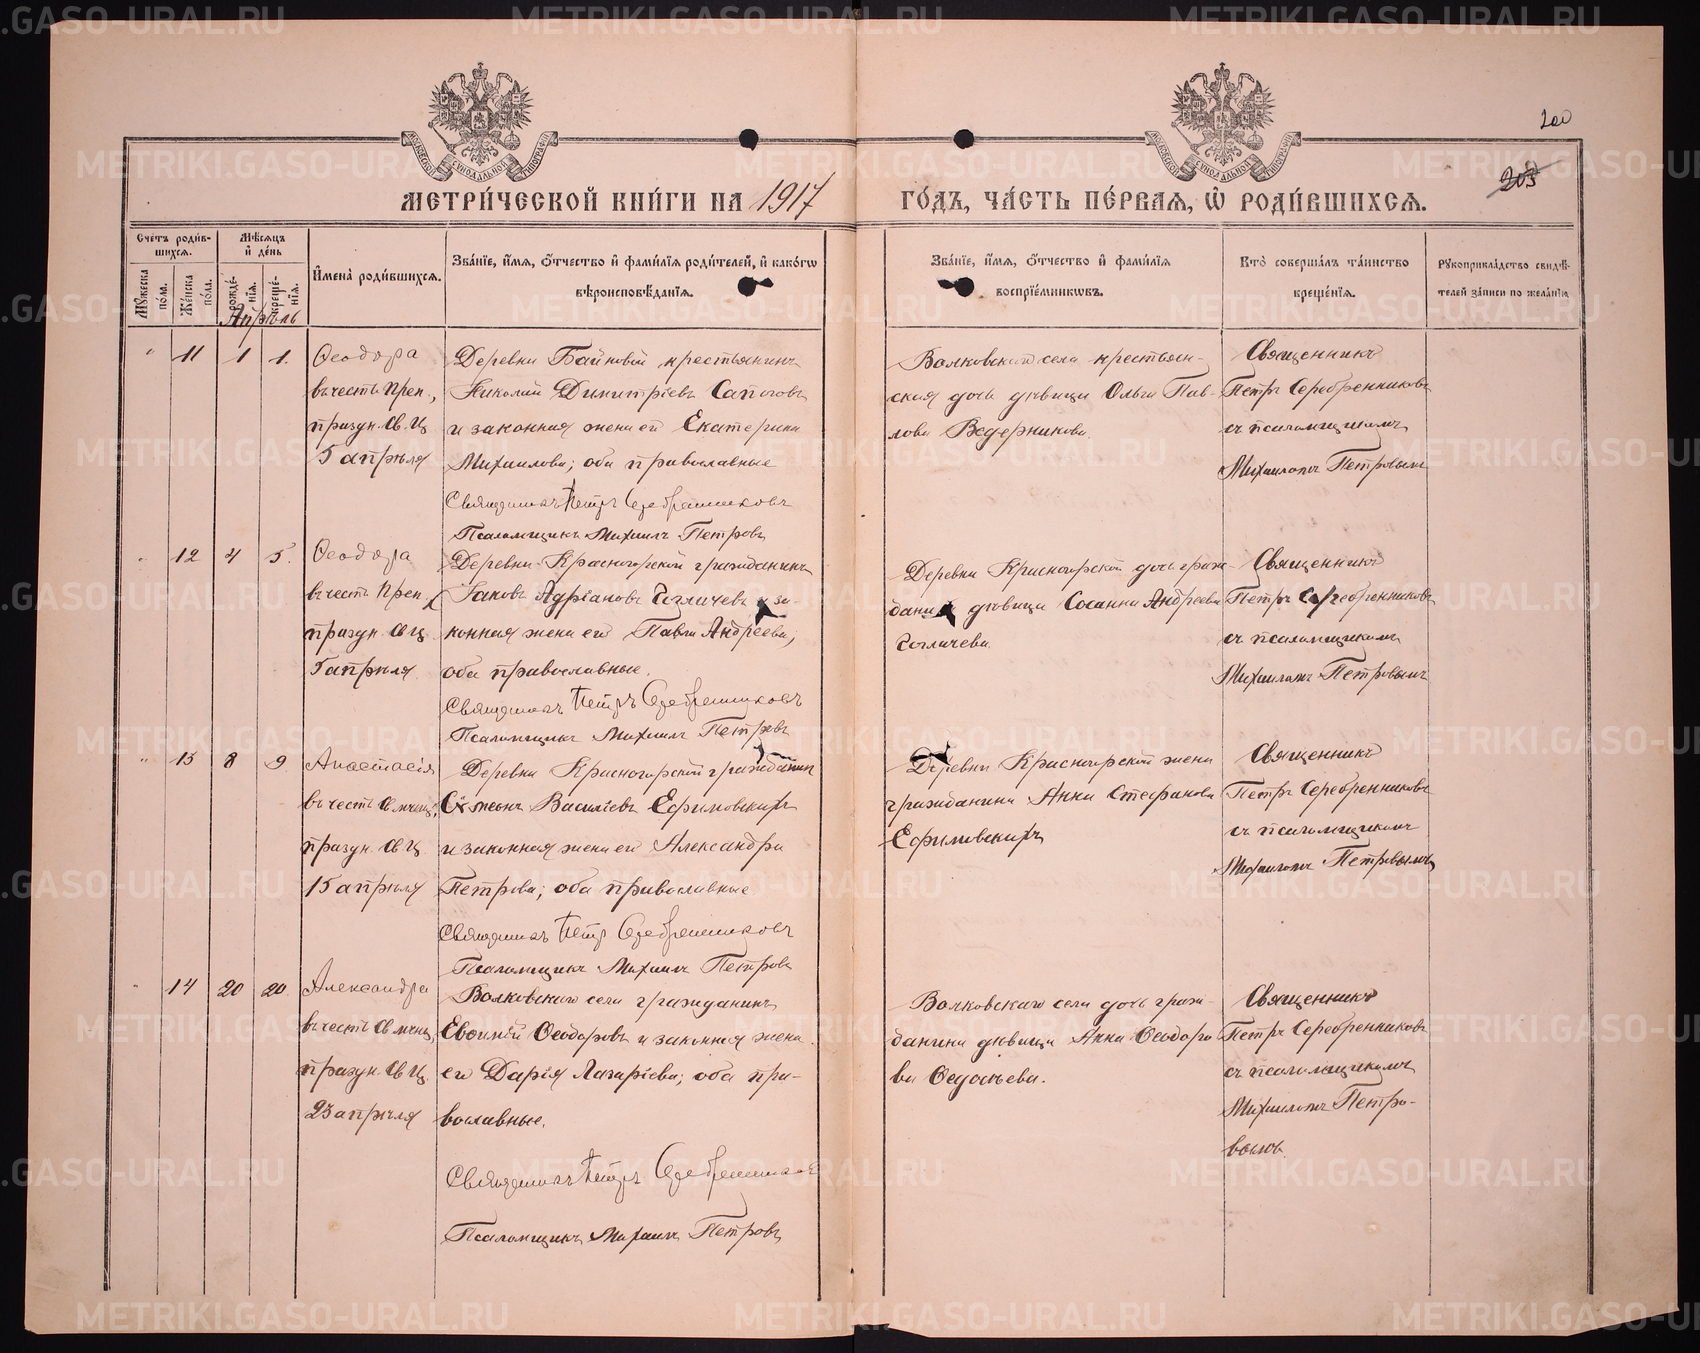 200
203
МЕТРИ́ЧЕСКОЙ КНИ́ГИ НА 1917
ГО́ДЪ, ЧА́СТЬ ПЕ́РВАЯ, Ѡ РОДИ́ВШИХСЯ.
Сче́тъ роди́в-
шихся.
Мѣ́сяцъ
и҆ де́нь
Му́жеска
по́ла.
Же́нска
по́ла.
рожде́-
нїя.
креще́-
нїя.
И҆мена̀ роди́вшихся.
Зва́нїе, и҆́мя, ѻ҆́тчество и҆ фами́лїя роди́телей, и҆ како́гѡ
вѣроисповѣ́данїя.
Зва́нїе, и҆́мя, ѻ҆́тчество и҆ фами́лїя
воспрїе́мникѡвъ.
Кто̀ соверша́лъ та́инство
креще́нїя.
Рꙋкоприкла́дство свидѣ́-
телей за́писи по жела́нїю
Апрѣль
" 11 1 1.
Ѳеодора
въ честь Преп.,
празун. св. ц.
5 апрѣля
Деревни Байновой крестьянинъ
Николай Димитріевъ Сапоговъ
и законная жена его Екатерина
Михаилова; оба православные
Священникъ Петръ Серебренниковъ
Псаломщикъ Михаилъ Петровъ
Волковскаго села крестьян-
ская дочь дѣвица Ольга Пав-
лова Ведерникова.
Священникъ
Петръ Серебренниковъ
съ псаломщикомъ
Михаиломъ Петровымъ
" 12 4 5.
Ѳеодора
въ честь Преп.,
празун. св. ц.
5 апрѣля
Деревни Красногорской гражданинъ
Іаковъ Адріановъ и за-
конная жена его Павла Андреева,
оба православные.
Священникъ Петръ Серебренниковъ
Псаломщикъ Михаилъ Петровъ
Деревни Красногорской дочь граж-
данина дѣвица Сосанна Андреева
Священникъ
Петръ Серебренниковъ
съ псаломщикомъ
Михаиломъ Петровымъ
" 13 8 9.
Анастасія
въ честь св. мчниц.,
празун. св. ц.
15 апрѣля
Деревни Красногорской гражданин
Симеонъ Василіевъ Ефимовскихъ
и законная жена его Александра
Петрова; оба православные
Священникъ Петръ Серебренниковъ
Псаломщикъ Михаилъ Петровъ
Деревни Красногорской жена
гражданина Анна Стефанова
Ефимовскихъ
Священникъ
Петръ Серебренниковъ
съ псаломщикомъ
Михаиломъ Петровымъ
" 14 20 20.
Александра
въ честь св. мчниц.,
празун. св. ц.
23 апрѣля
Волковскаго села гражданинъ
Евѳимій Ѳеодоровъ и законная жена
его Дарія Лазаріева; оба пра-
вославные.
Священникъ Петръ Серебренниковъ
Псаломщикъ Михаилъ Петровъ
Волковскаго села дочь граж-
данина дѣвица Анна Ѳеодоро-
ва Ѳедосѣева.
Священникъ
Петръ Серебренниковъ
съ псаломщикомъ
Михаиломъ Петро-
вымъ.
METRIKI.GASO-URAL.RU